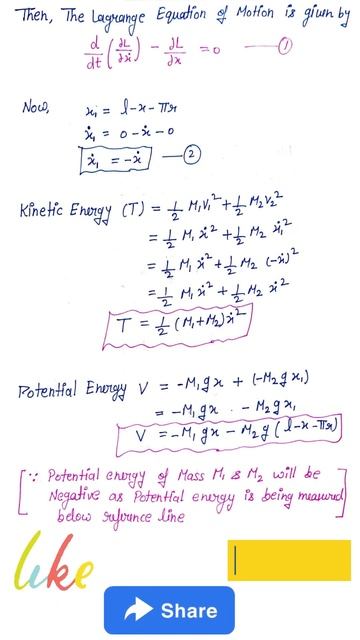 Then, The Lagrange Equation of Motion is given by
d/dt (∂L/∂ẋ) - ∂L/∂x = 0 —①
Now, x₁ = l-x-πr
ẋ₁ = 0-ẋ-0
ẋ₁ = -ẋ —②
Kinetic Energy (T) = 1/2 M₁V₁² + 1/2 M₂V₂²
= 1/2 M₁ ẋ² + 1/2 M₂ ẋ₁²
= 1/2 M₁ ẋ² + 1/2 M₂ (-ẋ)²
= 1/2 M₁ ẋ² + 1/2 M₂ ẋ²
T = 1/2 (M₁+M₂)ẋ²
Potential Energy V = -M₁gx + (-M₂gx₁)
= -M₁gx - M₂gx₁
V = -M₁gx - M₂g(l-x-πr)
[∵ Potential energy of Mass M₁ & M₂ will be
Negative as Potential energy is being measured
below reference line]
like
Share